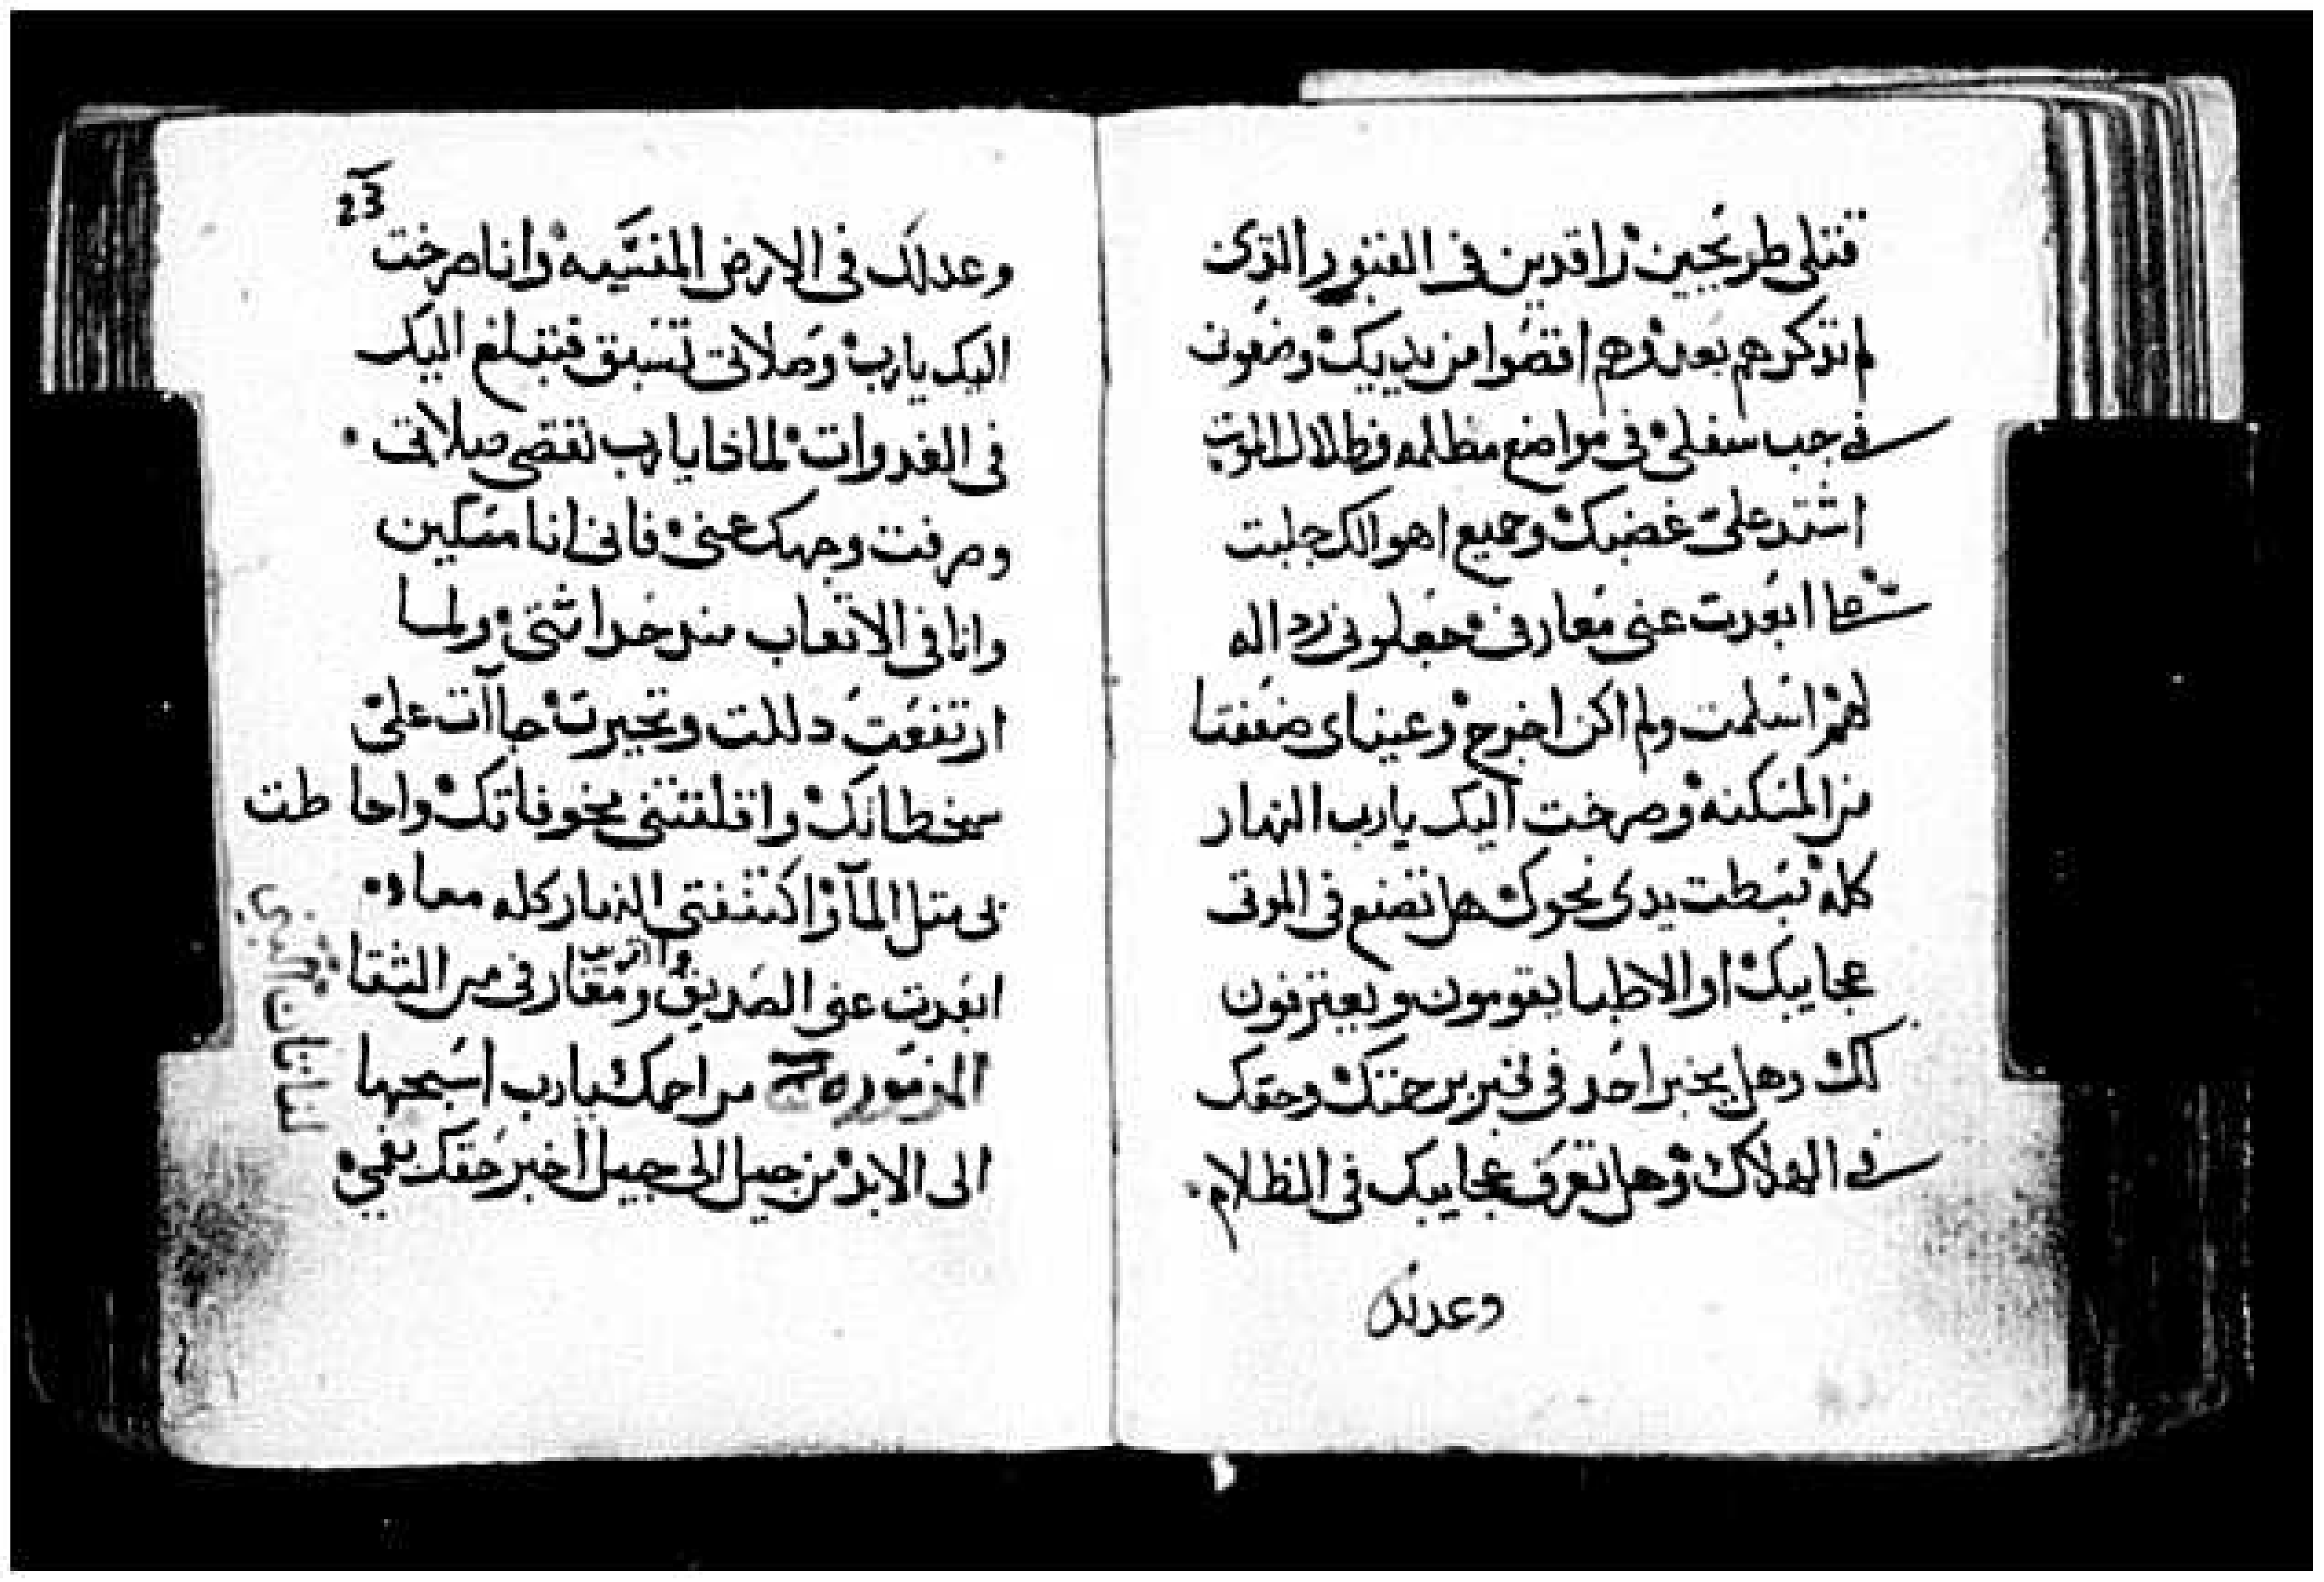 قتلى طريحين راقدين في القبور الذى
لم تذكرهم بعد وهم اقصوا من يديك وضعونى
في جب سفلى في مواضع مظلمه وظلال الموت
اشتد علىّ غضبك وجميع اهوالك جلبت
علىّ ابعدت عنى معارفى جعلونى رداله
لهم اسلمت ولم اكن اخرج وعيناى ضعفتا
من المسكنه وصرخت اليك يارب النهار
كله بسطت يدى نحوك هل تصنع فى الموتى
عجايبك او الاطبا يقومون ويعترفون
لك وهل يخبر احد فى قبر برحمتك وحقك
في الهلاك وهل تعرف عجايبك فى الظلام
وعدلك
23
وعدلك فى الارض المنسيه وانا صرخت
اليك يارب وصلاتى تسبق فتبلغ اليك
فى الغدوات لماذا يارب تقصى صلاتى
وصرفت وجهك عنى فانى انا مسكين
وانا فى الاتعاب منذ حداثتى ولما
ارتفعت دللت وتحيرت جاآت علىّ
سخطاتك واقلقتنى مخوفاتك واحاطت
بى مثل المآ واكتنفتنى النهار كله معا
ابعدت عنى الصديق ومعارفى من الشقا
المزموره مراحمك يارب اسبحها
الى الابد من جيل الى جيل اخبر حقك بفمى